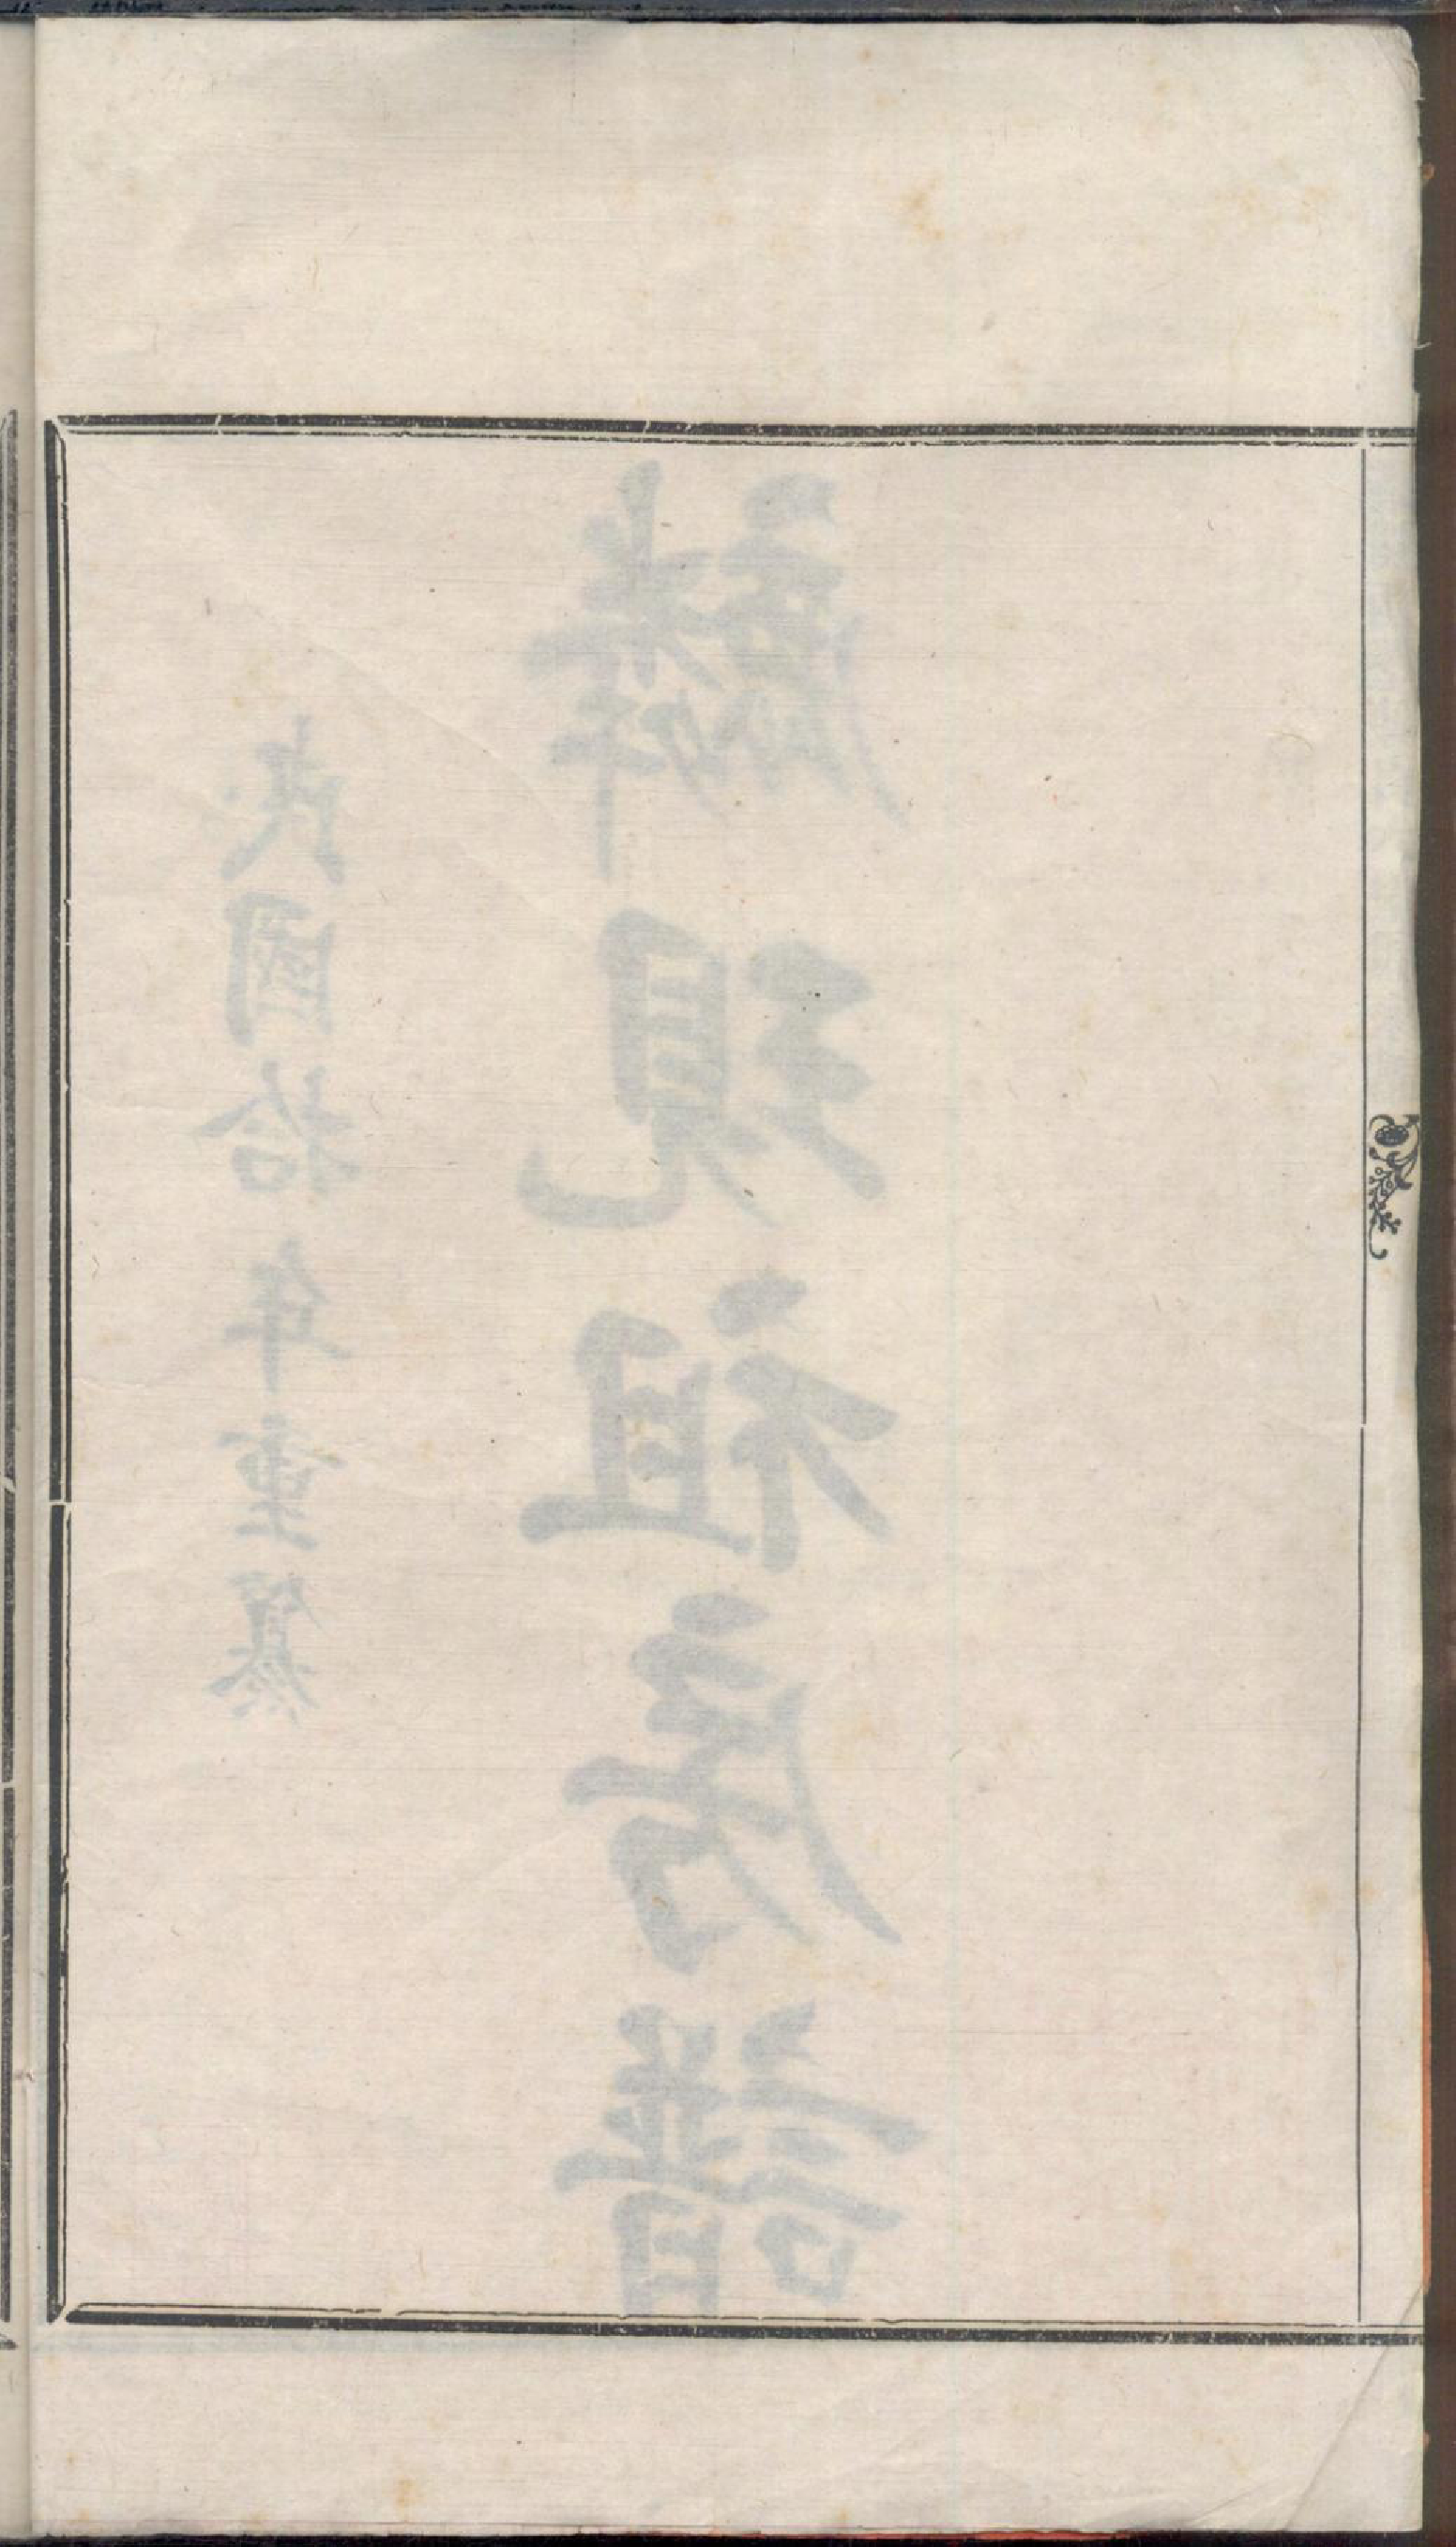 民國拾年重纂
麟現祖房譜